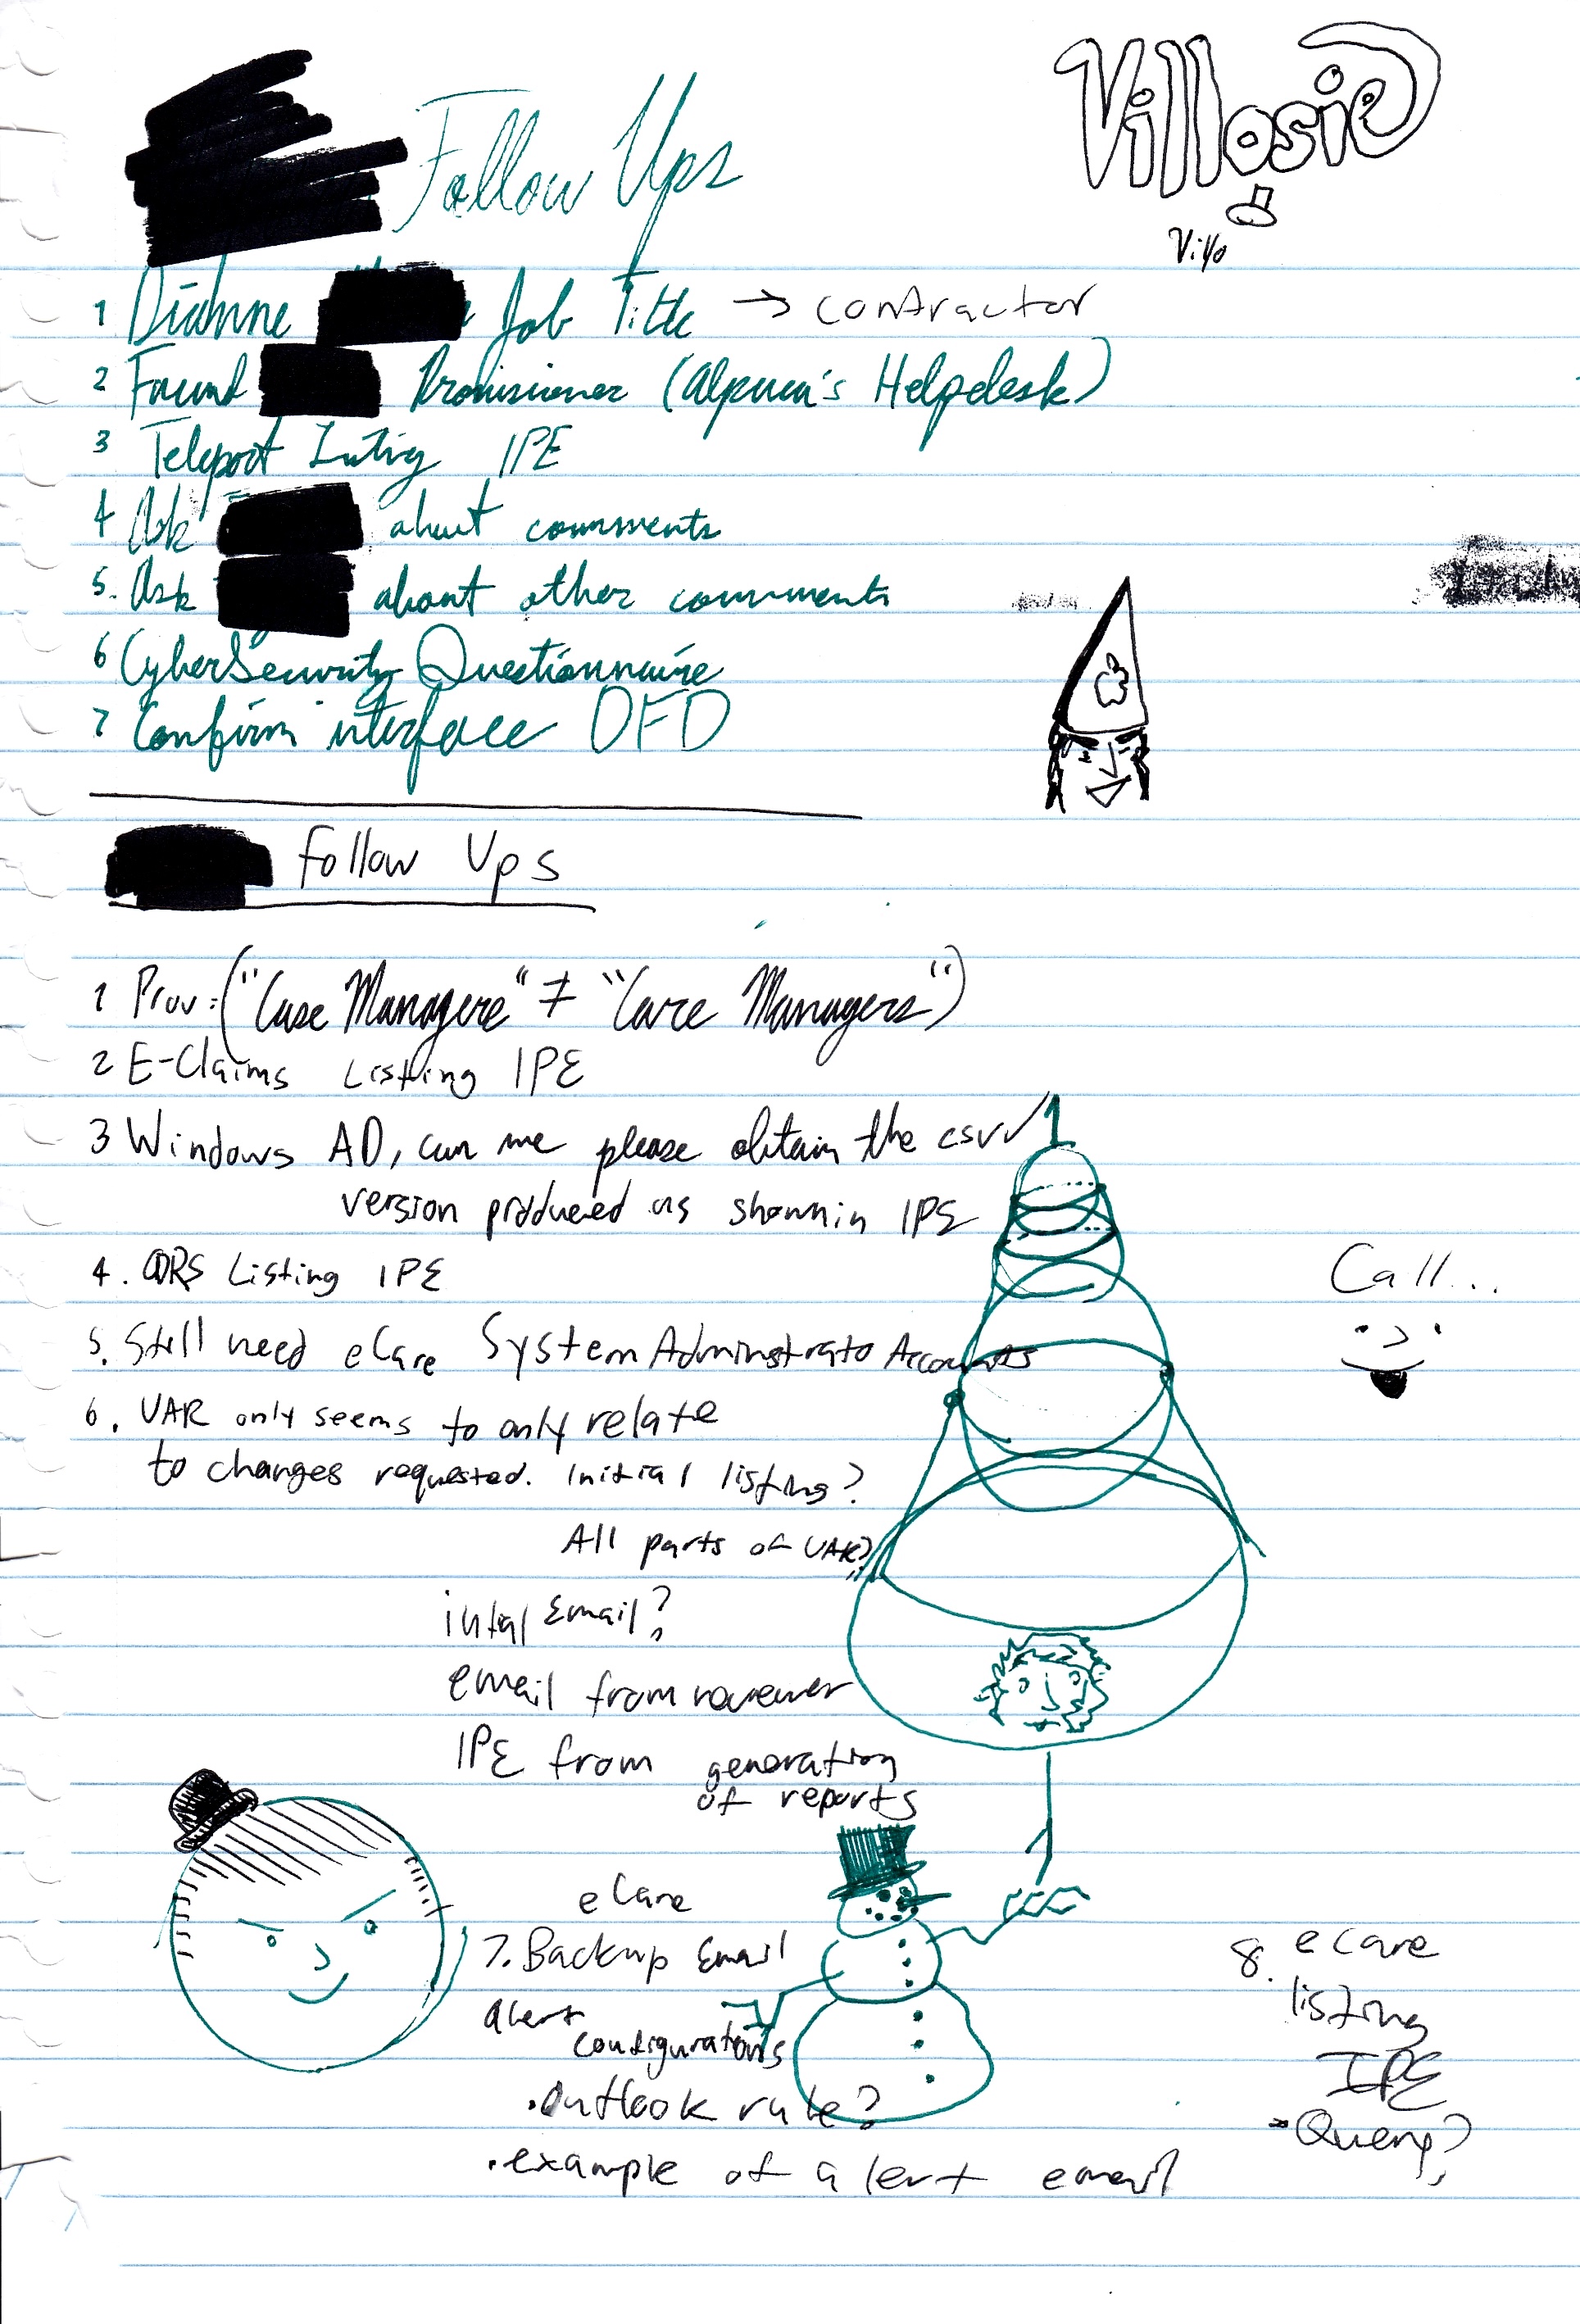 Follow Ups
Villosie
Villo
1 Dianne Job Title → contractor
2 Found Provisioner (Alpuca's Helpdesk)
3 Teleport IPE
4 Ask about comments
5. Ask about other comments
6 CyberSecurity Questionnaire
7 Confirm interface OFD
Follow Ups
1 Prov: ("Case Managers" ≠ "Care Managers")
2 E-Claims Listing IPE
3 Windows AD, can we please obtain the csv
version produced as shown in IPE
4. QRS Listing IPE
Call...
5. Still need eCare System Adminstrato Accounts
6. UAR only seems to only relate
to changes requested. Initial listing?
All parts of UAR?
intial Email?
email from reviewer
IPE from generation
of reports
eCare
7. Backup Email
alert
configurations
• Outlook rule?
• example of alert email
8. eCare
listing
IPE
Query?